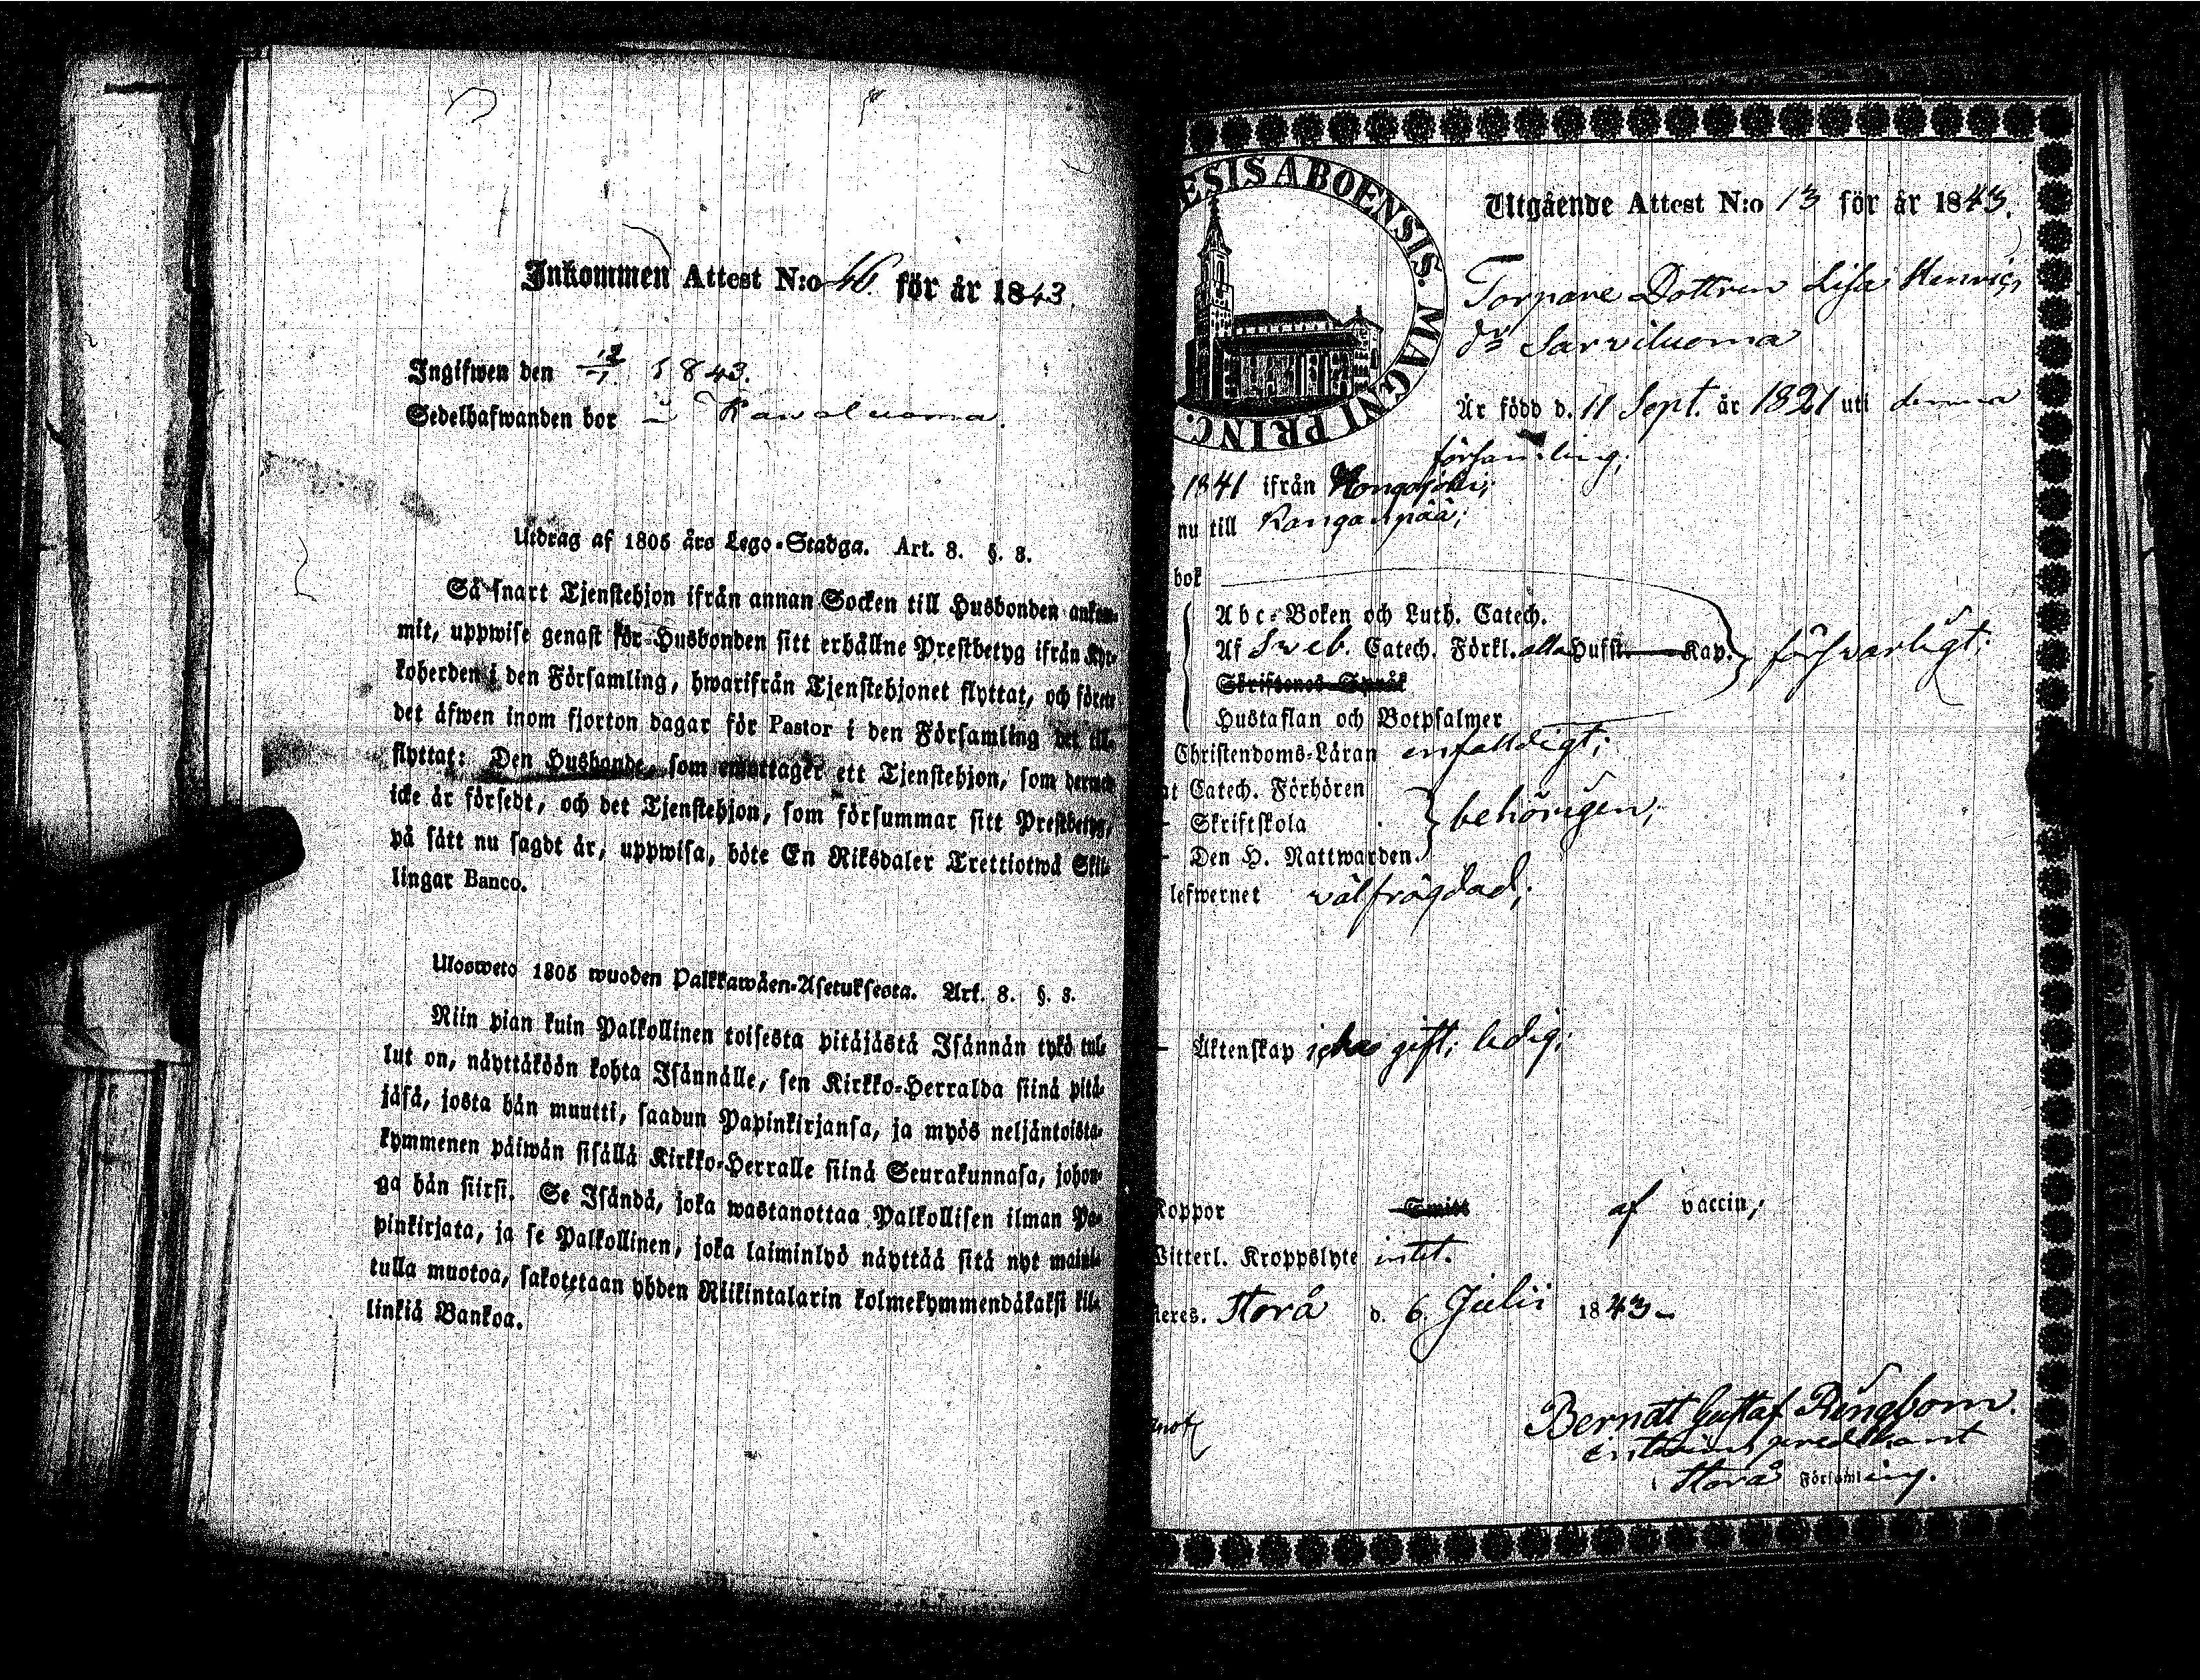 Inkommen Attest N:o 46. för år 1843.
Ingifwen den 1843.
Sedelhafwanden bor i
Utdrag af 1805 års Lego-Stadga. Art. 8. §. 3.
Så snart Tjenstehjon ifrån annan Socken till Husbonden ankom-
mit, uppwise genast för Husbonden sitt erhållne Prestbetyg ifrån Kyr-
koherden i den Församling, hwarifrån Tjenstehjonet flyttat, och förete
det äfwen inom fjorton dagar för Pastor i den Församling det till-
flyttat: Den Husbonde, som emottager ett Tjenstehjon, som dermed
icke är försedt, och det Tjenstehjon, som försummar sitt Prestbetyg,
på sätt nu sagdt är, uppwisa, böte En Riksdaler Trettiotwå Skil-
lingar Banco.
Ulosweto 1805 wuoden Palkkawäen-Asetuksesta. Art. 8. §. 3.
Niin pian kuin Palkollinen toisesta pitäjästä Isännän tykö tul-
lut on, näyttäköön kohta Isännälle, sen Kirkko-Herralda siinä pitä-
jäsä, josta hän muutti, saadun Papinkirjansa, ja myös neljäntoista-
kymmenen päiwän sisällä Kirkko-Herralle siinä Seurakunnasa, johon-
ga hän siirsi. Se Isändä, joka wastanottaa Palkollisen ilman Pa-
pinkirjata, ja se Palkollinen, joka laiminlyö näyttää sitä nyt maini-
tulla muotoa, sakotetaan yhden Riikintalarin kolmekymmendäkaksi kil-
linkiä Bankoa.
ESIS ABOENSIS. MAGNI PRINC.
Utgående Attest N:o 13 för år 1843.
Torpare Dottren Lisa Henrics
dr Sarviluoma
Är född d. 11 Sept. år 1821 uti denna
församling;
1841 ifrån Hongojoki;
nu till Kanganpää;
bok
Abc-Boken och Luth. Catech.
Af Sveb. Catech. Förkl. alla Hufst. Kap. försvarligt;
Skriftenes Språk
Hustaflan och Botpsalmer
Christendoms-Läran enfaldigt;
at Catech. Förhören
Skriftskola behörigen;
Den H. Nattwarden.
lefwernet välfrägdad;
Äktenskap icke gift; ledig;
Koppor Smitt af vaccin;
Witterl. Kroppslyte intet.
teres. Storå d. 6. Julii 1843
Berndt Gustaf Ringbom.
predikant
i Storå Församling.